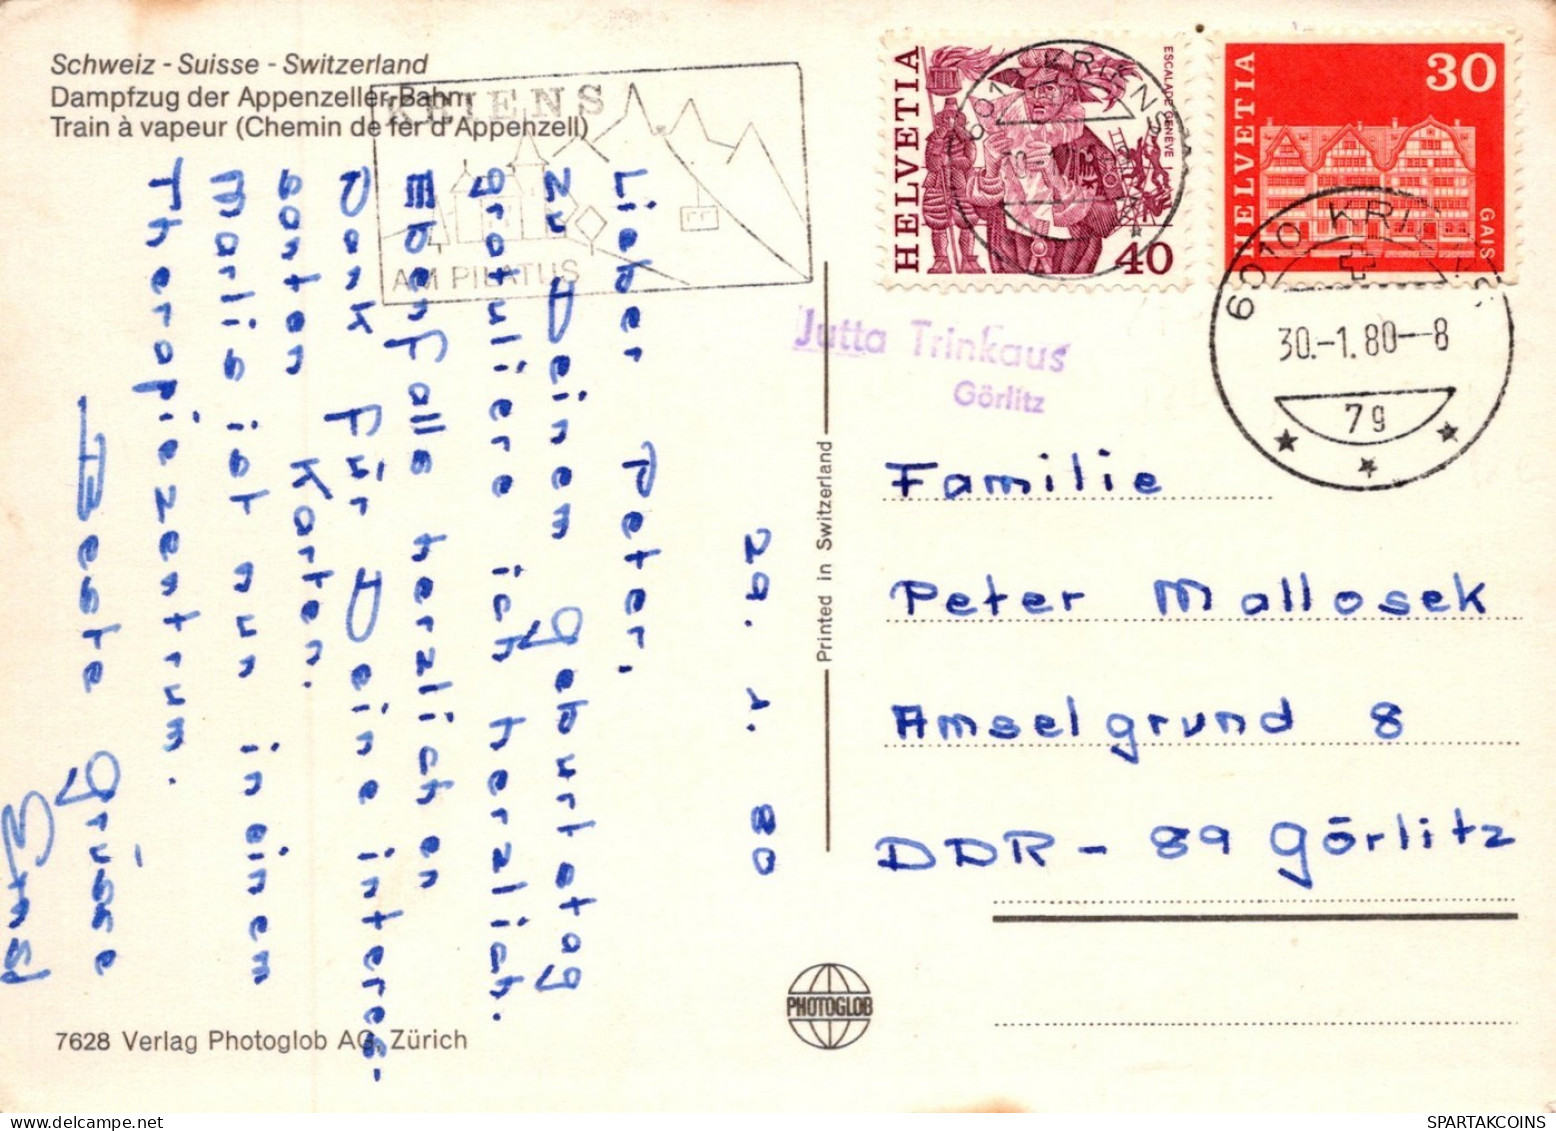 Schweiz - Suisse - Switzerland
Dampfzug der Appenzeller-Bahn
Train à vapeur (Chemin de fer d'Appenzell)
KRIENS
AM PILATUS
HELVETIA
ESCALADE GENÈVE
40
HELVETIA
30
GAIS
6010 KRIENS
6010 KRIENS
30.-1.80--8
7g
Jutta Trinkaus
Görlitz
29. 1. 80
Lieber Peter,
zu Deinem Geburtstag
gratuliere ich herzlich.
Ebenfalls herzlichen
Dank für Deine interes-
santen Karten.
Marlis ist nun in einem
Therapiezentrum.
Beste Grüsse
Printed in Switzerland
Familie
Peter Mallosek
Amselgrund 8
DDR - 89 Görlitz
PHOTOGLOB
7628 Verlag Photoglob AG, Zürich
SPARTAKCOINS.COM